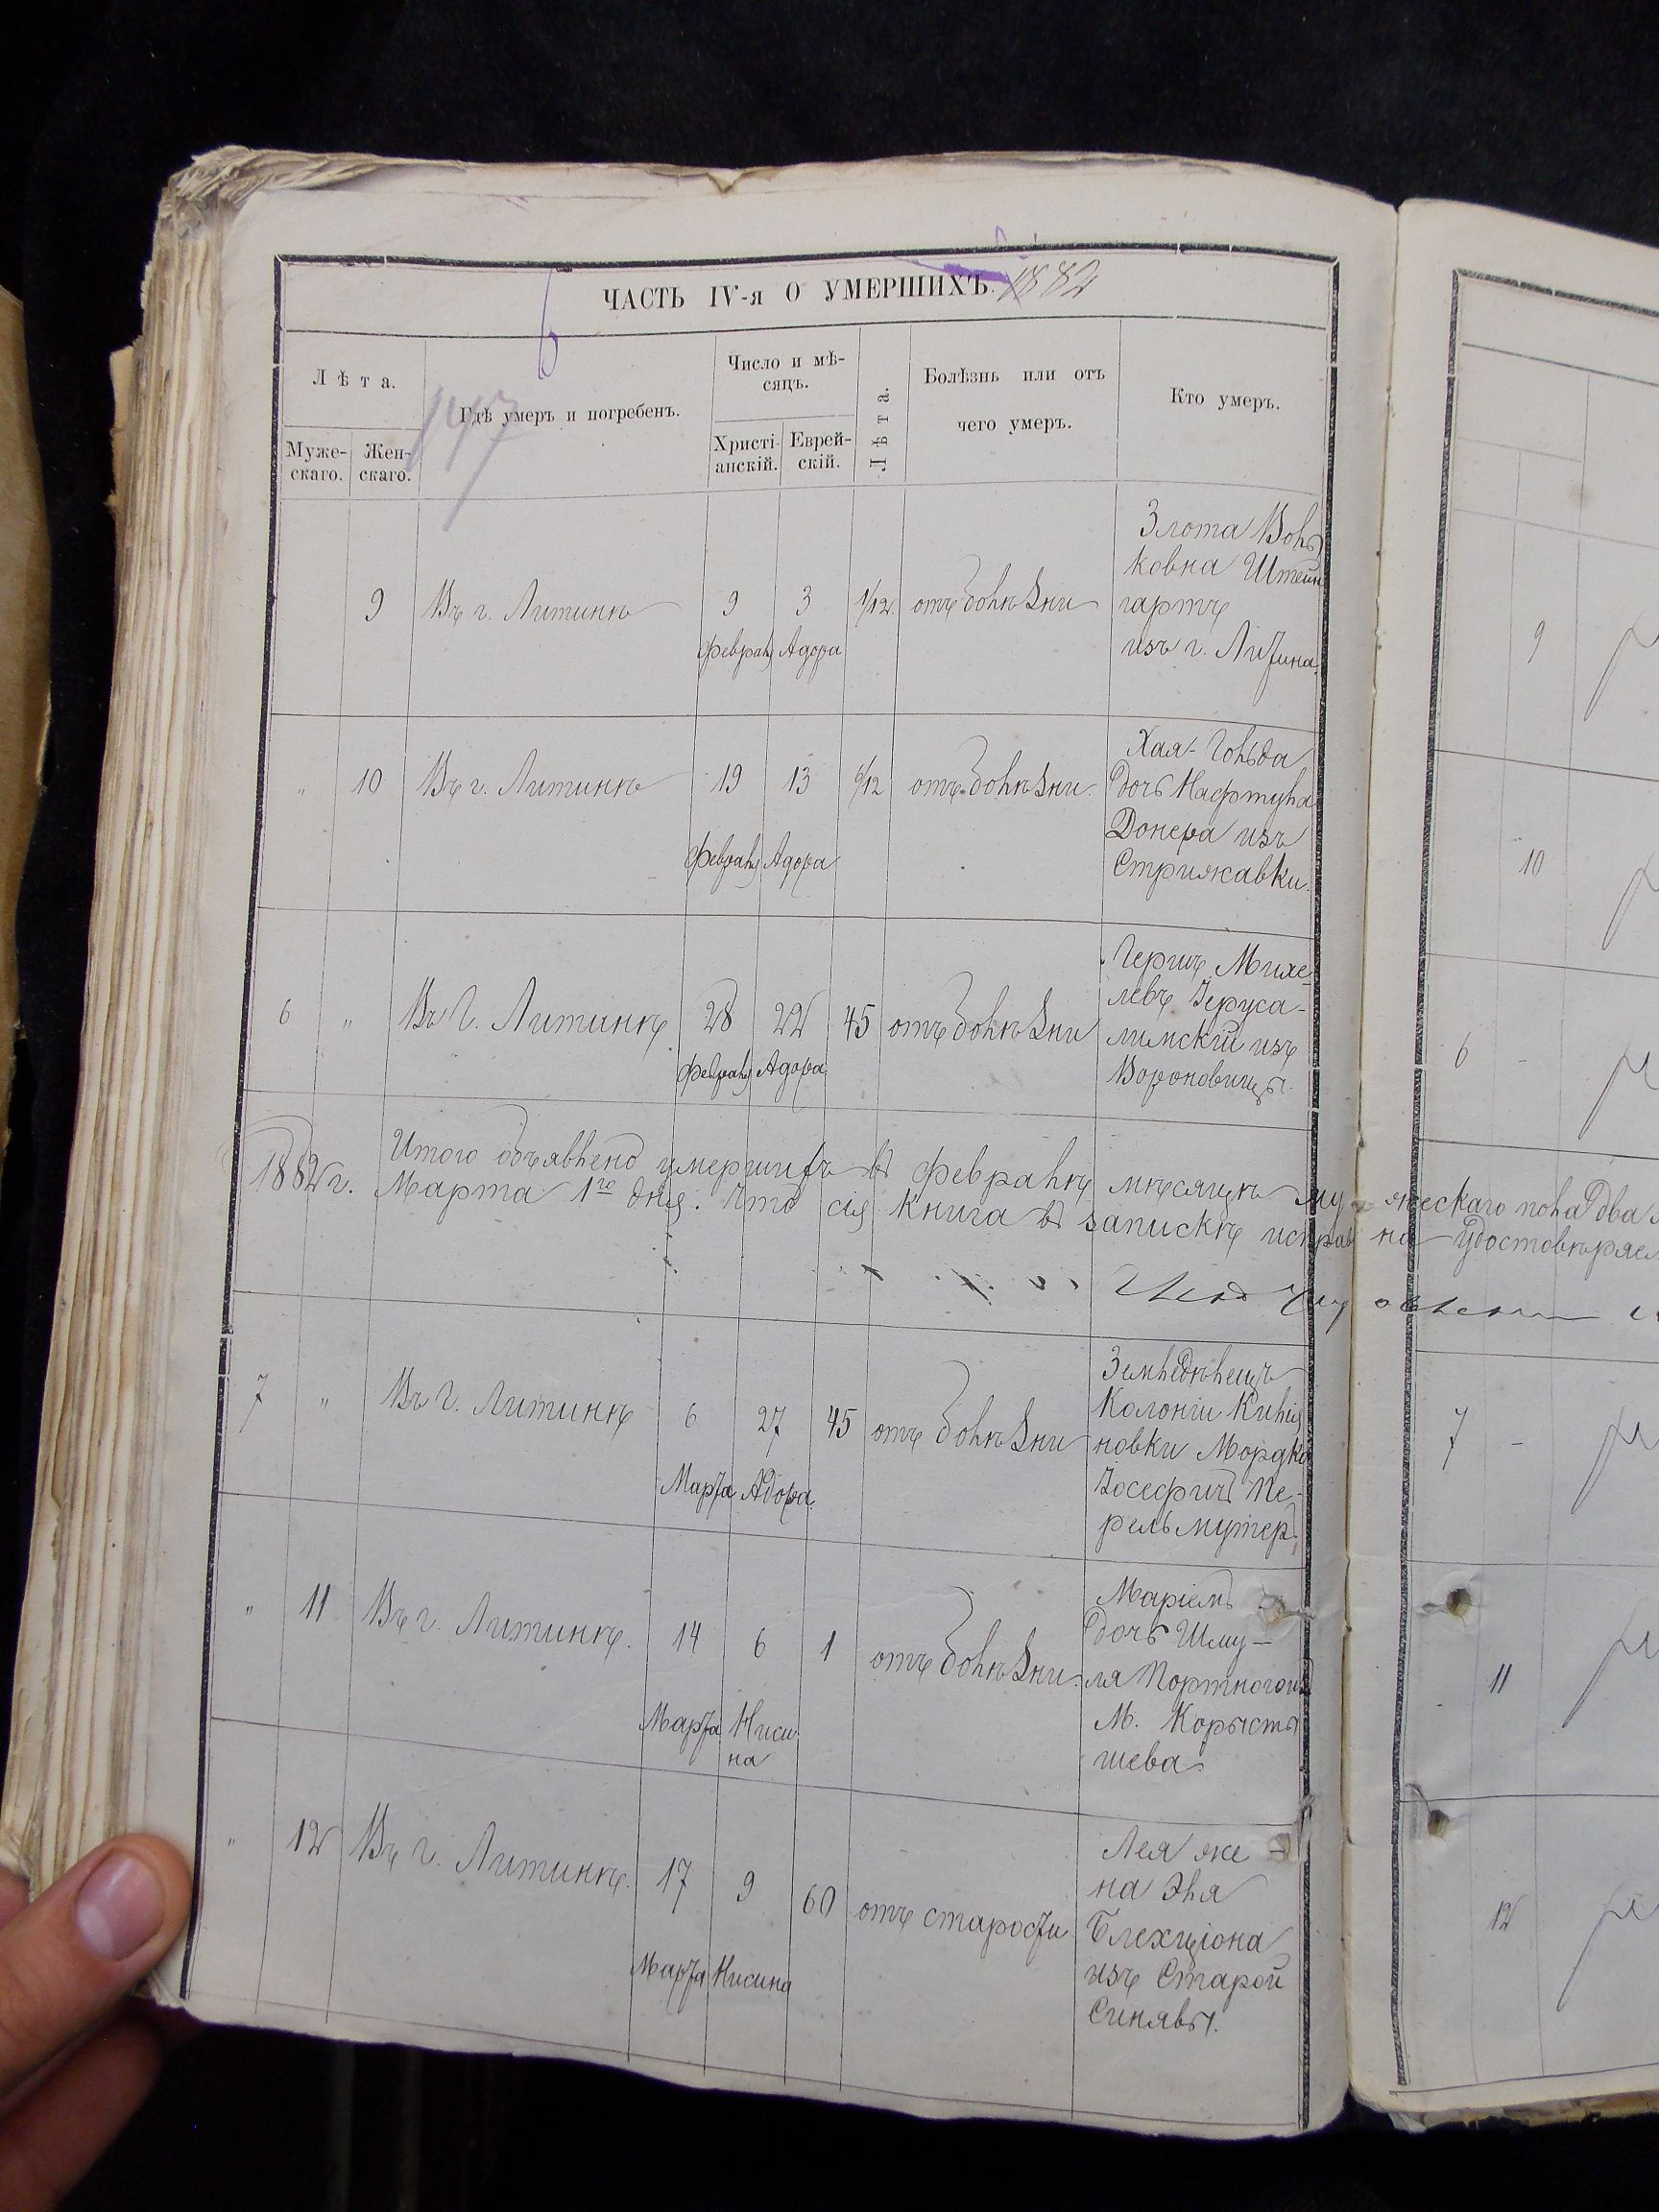 ЧАСТЬ IV-я О УМЕРШИХЪ. 1882
Лѣта.
Муже-
скаго.
Жен-
скаго.
147
Гдѣ умеръ и погребенъ.
Число и мѣ-
сяцъ.
Христі-
анскій.
Еврей-
скій.
Лѣта.
Болѣзнь или отъ
чего умеръ.
Кто умеръ.
9
Въ г. Литинѣ
9
Февраля
3
Адора
1/12
отъ болѣзни
Злота Воль
ковна Штейн
гартъ
изъ г. Литина.
9
„
10
Въ г. Литинѣ
19
Февраля
13
Адора
6/12
отъ болѣзни.
Хая-Гольда
дочь Нафтула
Донера изъ
Стрижавки.
10
6
„
Въ Г. Литинѣ
28
Февраля
22
Адора
45
отъ болѣзни
Гершъ Михе-
левъ Іеруса-
лимскій изъ
Вороновицы.
6 -
Итого объявлено умершихъ въ Февралѣ мѣсяцѣ мужескаго пола два
1882 г. Марта 1го дня. Что сія книга въ запискѣ исправна удостовѣряем
7
„
Въ Г. Литинѣ
6
Марта
27
Адора
45
отъ болѣзни
Земледѣлецъ
Колоніи Килія
новки Мордко
Іосефичъ Пе-
рельмутер.
7 -
„
11
Въ г. Литинѣ.
14
Марта
6
Ниси
на
1
отъ болѣзни.
Маріемъ
дочь Шму-
ля Портного изъ
М. Корысты
шева.
11
„
12
Въ г. Литинѣ.
17
Марта
9
Нисина
60
отъ старости
Лея же-
на Эля
Блехціона
изъ Старой
Синявы.
12